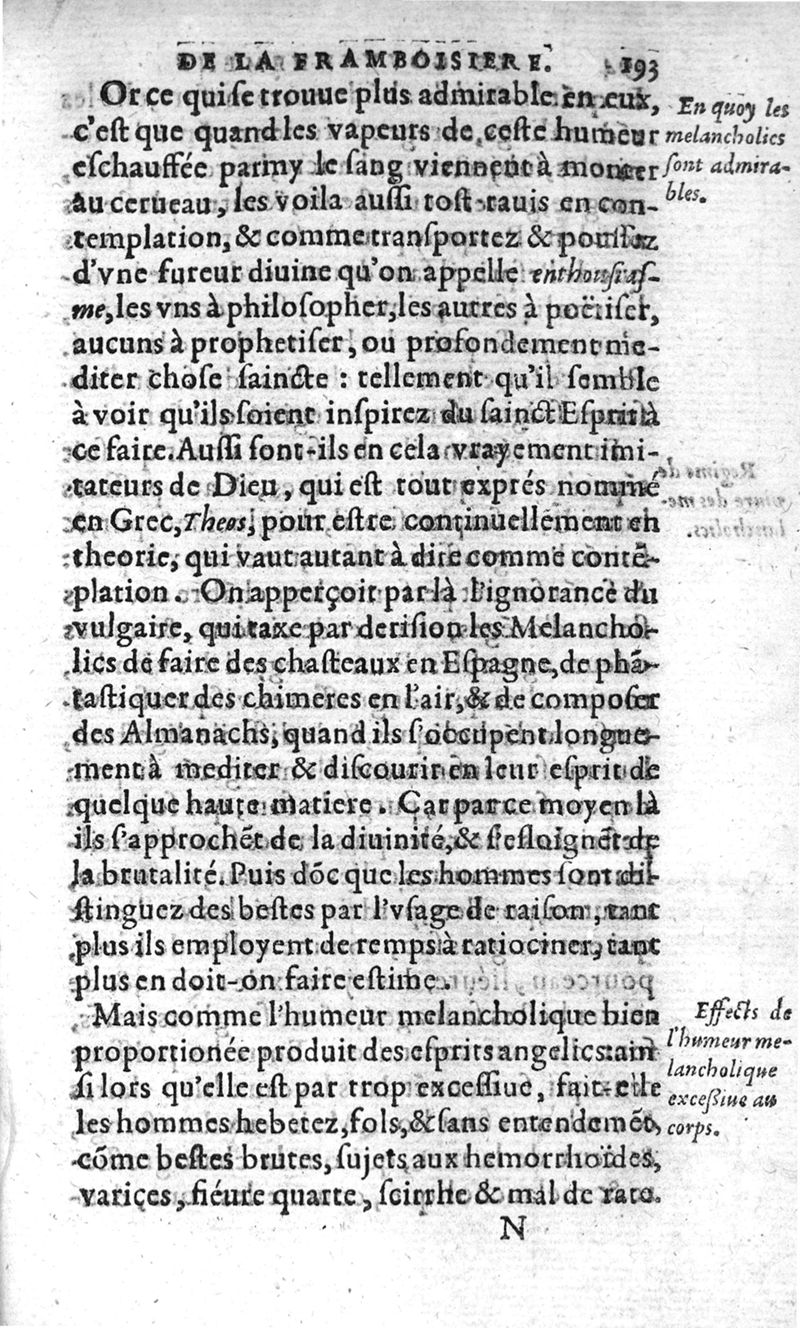 DE LA FRAMBOISIERE. 193
Or ce qui se trouue plus admirable en eux,
c'est que quand les vapeurs de ceste humeur
eschauffée parmy le sang viennent à monter
au cerueau, les voila aussi tost rauis en con-
templation, & comme transportez & poussez
d'vne fureur diuine qu'on appelle enthousias-
me, les vns à philosopher, les autres à poëtiser,
aucuns à prophetiser, ou profondement me-
diter chose saincte : tellement qu'il semble
à voir qu'ils soient inspirez du sainct Esprit à
ce faire. Aussi sont-ils en cela vrayement imi-
tateurs de Dieu, qui est tout exprés nommé
en Grec, Theos, pour estre continuellement en
theorie, qui vaut autant à dire comme contẽ-
plation. On apperçoit par là l'ignorance du
vulgaire, qui taxe par derision les Melancho-
lics de faire des chasteaux en Espagne, de phã-
tastiquer des chimeres en l'air, & de composer
des Almanachs, quand ils s'occupent longue-
ment à mediter & discourir en leur esprit de
quelque haute matiere. Car par ce moyen là
ils s'approchẽt de la diuinité, & s'esloignẽt de
la brutalité. Puis dõc que les hommes sont di-
stinguez des bestes par l'vsage de raison, tant
plus ils employent de temps à ratiociner, tant
plus en doit-on faire estime.
Mais comme l'humeur melancholique bien
proportionée produit des esprits angelics: ain
si lors qu'elle est par trop excessiue, fait-elle
les hommes hebetez, fols, & sans entendemẽt,
cõme bestes brutes, sujets aux hemorrhoïdes,
varices, fiéure quarte, scirrhe & mal de rate.
N
En quoy les
melancholics
sont admira-
bles.
Effects de
l'humeur me-
lancholique
excessiue au
corps.